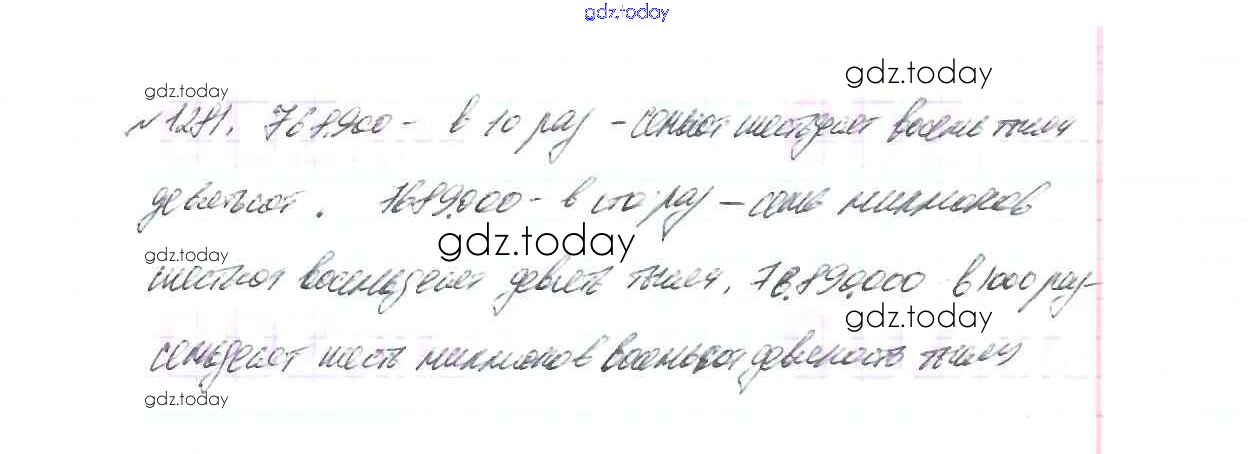 gdz.today
gdz.today
gdz.today
№1281. 768900 - в 10 раз - семьсот шестьдесят восемь тысяч
девятьсот. 7689.000 - в сто раз - семь миллионов
gdz.today
gdz.today
шестьсот восемьдесят девять тысяч. 76.890.000 в 1000 раз -
gdz.today
семьдесят шесть миллионов восемьсот девяносто тысяч
gdz.today